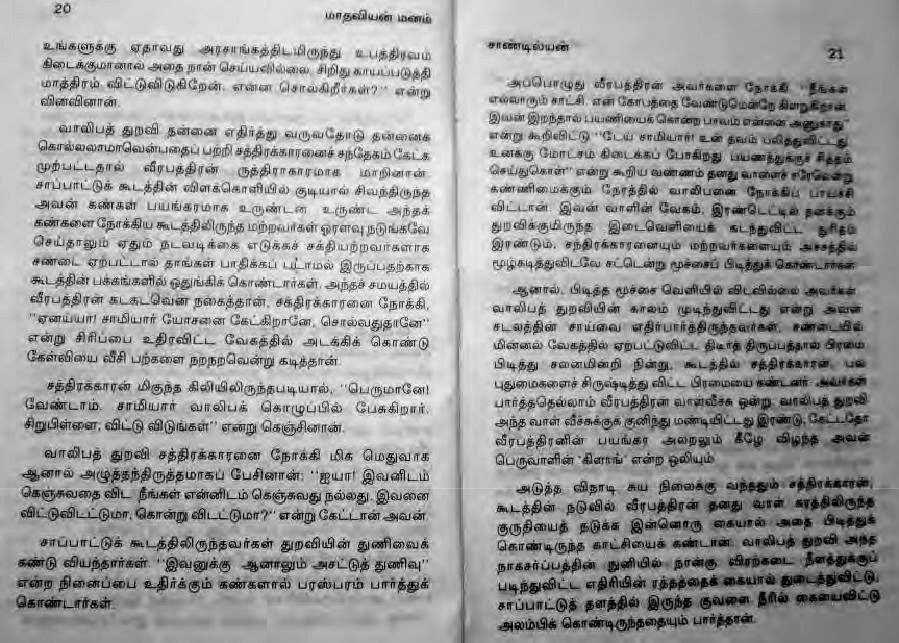 20
மாதவியன் மனம்
உங்களுக்கு ஏதாவது அரசாங்கத்திடமிருந்து உபத்திரவம்
கிடைக்குமானால் அதை நான் செய்யவில்லை. சிறிது காயப்படுத்தி
மாத்திரம் விட்டுவிடுகிறேன். என்ன சொல்கிறீர்கள்?" என்று
வினவினான்.
வாலிபத் துறவி தன்னை எதிர்த்து வருவதோடு தன்னைக்
கொல்லலாமாவென்பதைப் பற்றி சத்திரக்காரனைச் சந்தேகம் கேட்க
முற்பட்டதால் வீரபத்திரன் ருத்திராகாரமாக மாறினான்.
சாப்பாட்டுக் கூடத்தின் விளக்கொளியில் குடியால் சிவந்திருந்த
அவன் கண்கள் பயங்கரமாக உருண்டன. உருண்ட அந்தக்
கண்களை நோக்கிய கூடத்திலிருந்த மற்றவர்கள் ஓரளவு நடுங்கவே
செய்தாலும் ஏதும் நடவடிக்கை எடுக்கச் சக்தியற்றவர்களாக
சண்டை ஏற்பட்டால் தாங்கள் பாதிக்கப் பட்டாமல் இருப்பதற்காக
கூடத்தின் பக்கங்களில் ஒதுங்கிக் கொண்டார்கள். அந்தச் சமயத்தில்
வீரபத்திரன் கடகடவென நகைத்தான். சத்திரக்காரனை நோக்கி,
"ஏனய்யா! சாமியார் யோசனை கேட்கிறானே, சொல்வதுதானே"
என்று சிரிப்பை உதிரவிட்ட வேகத்தில் அடக்கிக் கொண்டு
கேள்வியை வீசி பற்களை நறநறவென்று கடித்தான்.
சத்திரக்காரன் மிகுந்த கிலியிலிருந்தபடியால், "பெருமானே!
வேண்டாம். சாமியார் வாலிபக் கொழுப்பில் பேசுகிறார்.
சிறுபிள்ளை, விட்டு விடுங்கள்" என்று கெஞ்சினான்.
வாலிபத் துறவி சத்திரக்காரனை நோக்கி மிக மெதுவாக
ஆனால் அழுத்தந்திருத்தமாகப் பேசினான்: "ஐயா! இவனிடம்
கெஞ்சுவதை விட நீங்கள் என்னிடம் கெஞ்சுவது நல்லது. இவனை
விட்டுவிடட்டுமா, கொன்று விடட்டுமா?" என்று கேட்டான் அவன்.
சாப்பாட்டுக் கூடத்திலிருந்தவர்கள் துறவியின் துணிவைக்
கண்டு வியந்தார்கள். "இவனுக்கு ஆனாலும் அசட்டுத் துணிவு"
என்ற நினைப்பை உதிர்க்கும் கண்களால் பரஸ்பரம் பார்த்துக்
கொண்டார்கள்.
சாண்டில்யன்
21
அப்பொழுது வீரபத்திரன் அவர்களை நோக்கி "நீங்கள்
எல்லாரும் சாட்சி. என் கோபத்தை வேண்டுமென்றே கிளறுகிறான்.
இவன் இறந்தால் பயணியைக் கொன்ற பாவம் என்னை அணுகாது"
என்று கூறிவிட்டு "டேய் சாமியார்! உன் தவம் பலித்துவிட்டது.
உனக்கு மோட்சம் கிடைக்கப் போகிறது பயணத்துக்குச் சித்தம்
செய்துகொள்" என்று கூறிய வண்ணம் தனது வாளைச் சரேலென்று
கண்ணிமைக்கும் நேரத்தில் வாலிபனை நோக்கிப் பாய்ச்சி
விட்டான். இவன் வாளின் வேகம், இரண்டெட்டில் தனக்கும்
துறவிக்குமிருந்த இடைவெளியைக் கடந்துவிட்ட துரிதம்
இரண்டும், சந்திரக்காரனையும் மற்றவர்களையும் அச்சத்தில்
மூழ்கடித்துவிடவே சட்டென்று மூச்சைப் பிடித்துக் கொண்டார்கள்
ஆனால், பிடித்த மூச்சை வெளியில் விடவில்லை அவர்கள்
வாலிபத் துறவியின் காலம் முடிந்துவிட்டது என்று அவன்
சடலத்தின் சாய்வை எதிர்பார்த்திருந்தவர்கள், சண்டையில்
மின்னல் வேகத்தில் ஏற்பட்டுவிட்ட திடீர்த் திருப்பத்தால் பிரமை
பிடித்து சலனமின்றி நின்று, கூடத்தில் சத்திரக்காரன், பல
புதுமைகளைச் சிருஷ்டித்து விட்ட பிரமையை கண்டனர். அவர்கள்
பார்த்ததெல்லாம் வீரபத்திரன் வாள்வீச்சு ஒன்று, வாலிபத் துறவி
அந்த வாள் வீச்சுக்குக் குனிந்து மண்டியிட்டது இரண்டு, கேட்டதோ
வீரபத்திரனின் பயங்கர அலறலும் கீழே விழுந்த அவன்
பெருவாளின் 'கிளாங்' என்ற ஒலியும்
அடுத்த விநாடி சுய நிலைக்கு வந்ததும் சத்திரக்காரன்,
கூடத்தின் நடுவில் வீரபத்திரன் தனது வாள் கரத்திலிருந்த
குருதியைத் நடுக்க இன்னொரு கையால் அதை பிடித்துக்
கொண்டிருந்த காட்சியைக் கண்டான். வாலிபத் துறவி அந்த
நாகசர்ப்பத்தின் நுனியில் நான்கு விரற்கடை நீளத்துக்குப்
படிந்துவிட்ட எதிரியின் ரத்தத்தைக் கையால் துடைத்துவிட்டு,
சாப்பாட்டுத் தளத்தில் இருந்த குவளை நீரில் கையைவிட்டு
அலம்பிக் கொண்டிருந்ததையும் பார்த்தான்.